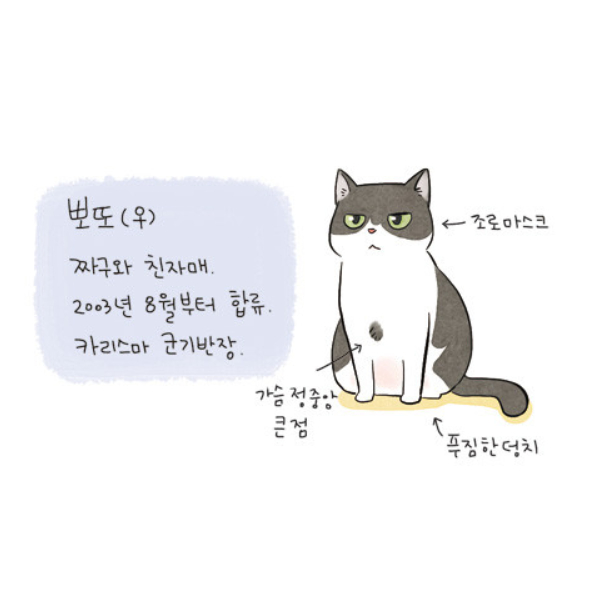 뽀또(우)
짜구와 친자매.
2003년 8월부터 합류.
카리스마 군기반장.
조로마스크
가슴 정중앙
큰 점
푸짐한 덩치